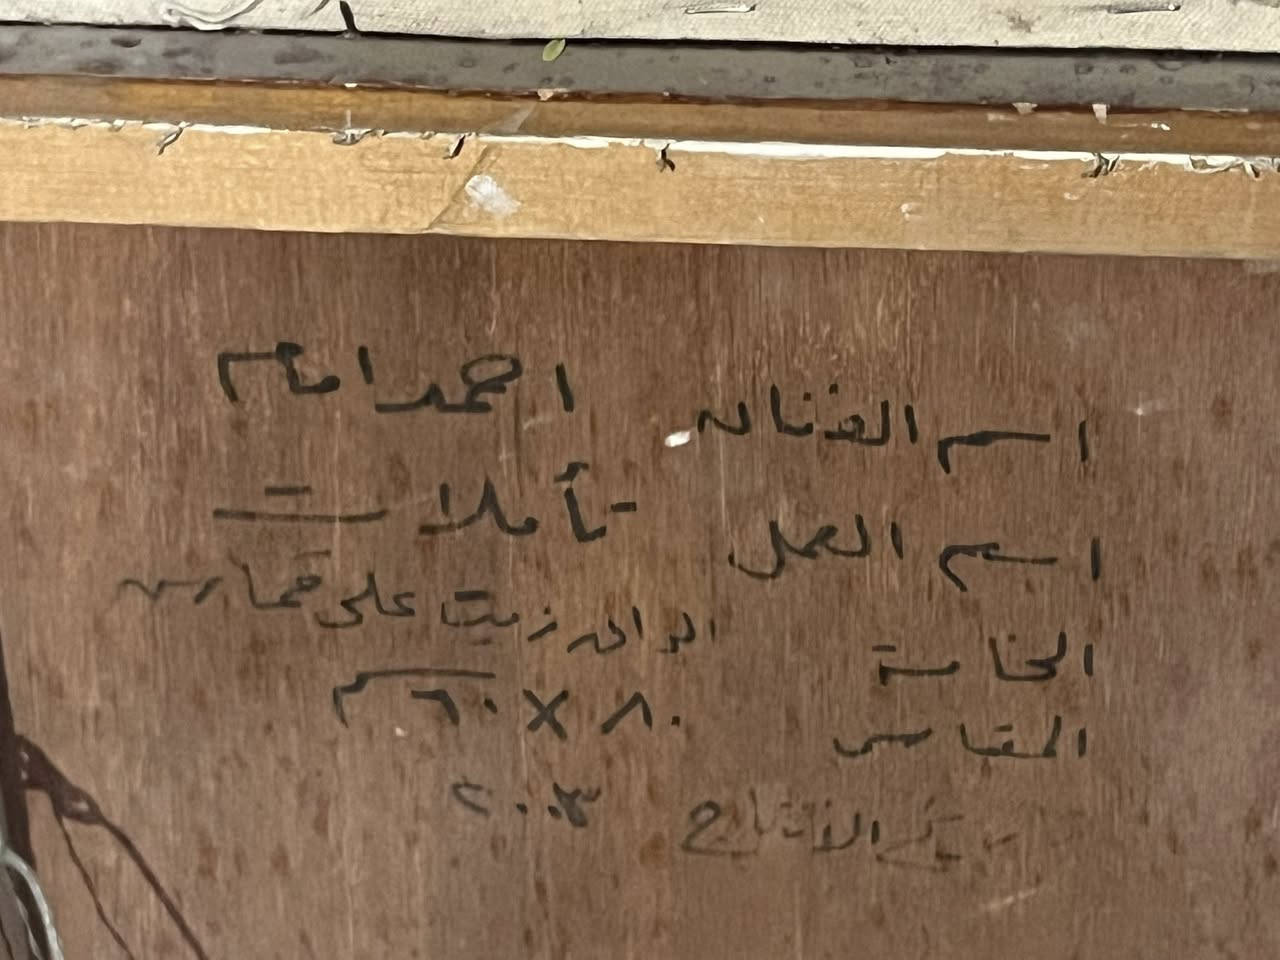 اسم الفنان احمد امام
اسم العمل تأملات
الخامة الوان زيت على قماش
المقاس ٨٠ × ٦٠ سم
الانتاج ٢٠٠٣